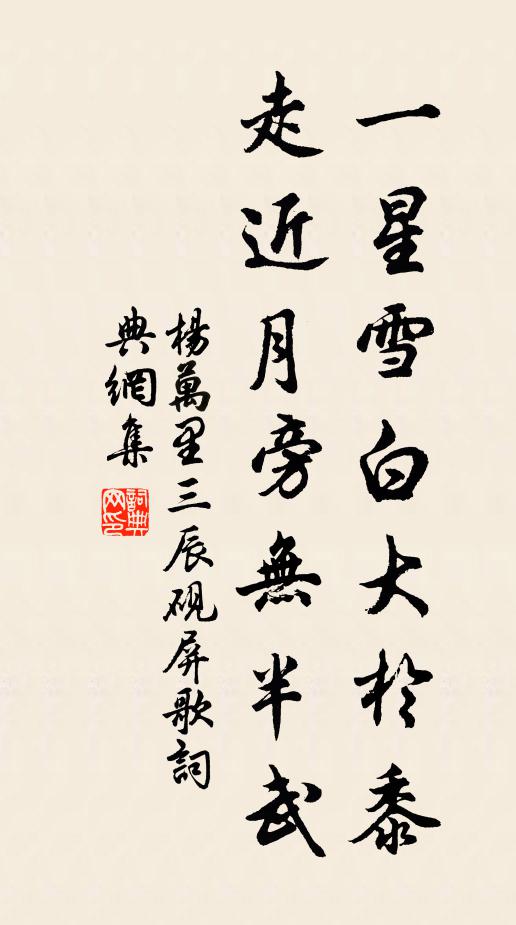 一星雪白大於黍
走近月旁無半武
楊萬里三辰硯屏歌詞
典網集
詞典网印